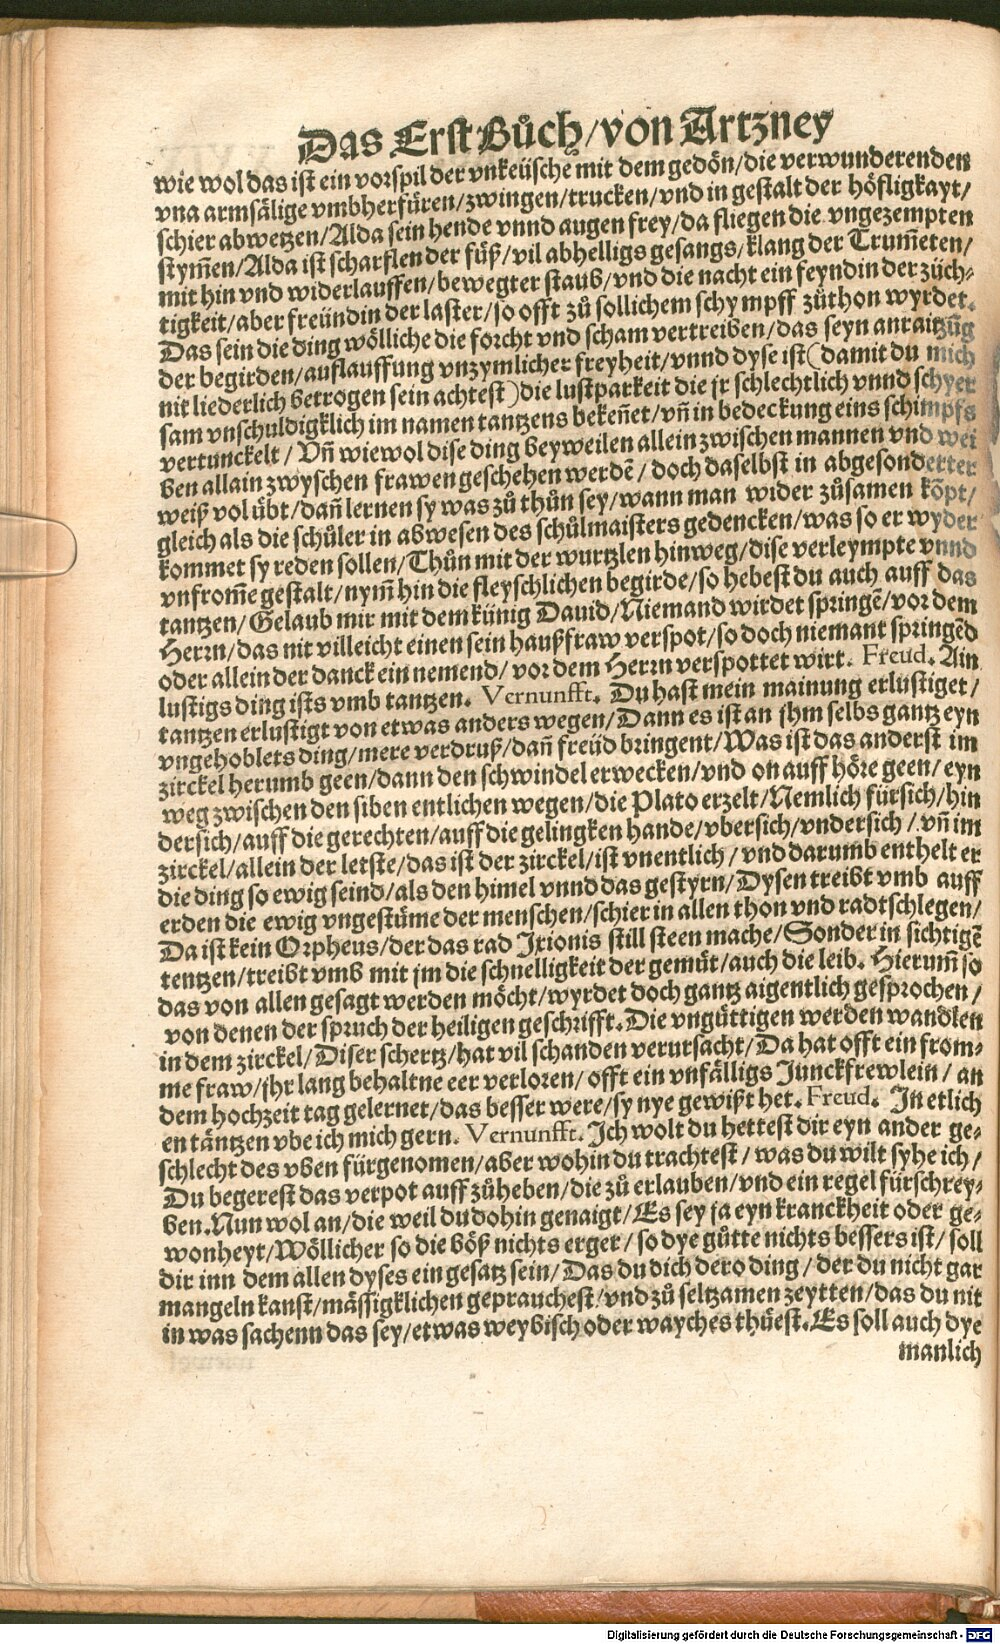 Das Erst Bůch/von Artzney
wie wol das ist ein vorspil der vnkeüschē mit dem gedön/die verwunderenden
vna armsälige vmbherfüren/zwingen/trucken/vnd in gestalt der höfligkayt/
schier abwetzen/Alda sein hende vnnd augen frey/da fliegen die vngezempten
stym̄en/Alda ist scharflen der füß/vil abhelligs gesangs/klang der Trum̄eten/
mit hin vnd widerlauffen/bewegter staub/vnd die nacht ein feyndin der züch⸗
tigkeit/aber freündin der laster/so offt zů sollichem schympff züthon wyrdet.
Das sein die ding wölliche die forcht vnd scham vertreiben/das seyn anraitzūg
der begirden/auflauffung vnzymlicher freyheit/vnnd dyse ist(damit du mich
nit liederlich betrogen sein achtest)die lustparkeit die jr schlechtlich vnnd schyer
sam vnschuldigklich im namen tantzens bekeñet/vñ in bedeckung eins schimpfs
vertunckelt/Vñ wiewol dise ding beyweilen allein zwischen mannen vnd wei
ben allain zwyschen frawen geschehen werdē/doch daselbst in abgesonderter
weiß vol übt/dañ lernen sy was zů thůn sey/wann man wider zůsamen kōpt/
gleich als die schüler in abwesen des schůlmaisters gedencken/was so er wyder
kommet sy reden sollen/Thůn mit der wurtzlen hinweg/dise verleympte vnnd
vnfrom̄e gestalt/nym̄ hin die fleyschlichen begirde/so hebest du auch auff das
tantzen/Gelaub mir mit dem künig Dauid/Niemand wirdet springē/vor dem
Herrn/das nit villeicht einen sein haußfraw verspot/so doch niemant springēd
oder allein der danck ein nemend/vor dem Herrn verspottet wirt. Freud. Ain
lustigs ding ists vmb tantzen. Vernunfft. Du hast mein mainung erlustiget/
tantzen erlustigt von etwas anders wegen/Dann es ist an jhm selbs gantz eyn
vngehoblets ding/mere verdruß/dañ freüd bringent/Was ist das anderst im
zirckel herumb geen/dann den schwindel erwecken/vnd on auff höre geen/eyn
weg zwischen den siben entlichen wegen/die Plato erzelt/Nemlich fürsich/hin
dersich/auff die gerechten/auff die gelingken hande/vbersich/vndersich/vñ im
zirckel/allein der letste/das ist der zirckel/ist vnentlich/vnd darumb enthelt er
die ding so ewig seind/als den himel vnnd das gestyrn/Dysen treibt vmb auff
erden die ewig vngestüme der menschen/schier in allen thon vnd radtschlegen/
Da ist kein Orpheus/der das rad Ixionis still steen mache/Sonder in sichtigē
tentzen/treibt vmb mit jm die schnelligkeit der gemüt/auch die leib. Hierum̄ so
das von allen gesagt werden möcht/wyrdet doch gantz aigentlich gesprochen/
von denen der spruch der heiligen geschrifft. Die vngüttigen werden wandlen
in dem zirckel/Diser schertz/hat vil schanden verursacht/Da hat offt ein from⸗
me fraw/jhr lang behaltne eer verloren/offt ein vnfälligs Junckfrewlein/an
dem hochzeit tag gelernet/das besser were/sy nye gewißt het. Freud. In etlich
en täntzen vbe ich mich gern. Vernunfft. Ich wolt du hettest dir eyn ander ge⸗
schlecht des vben fürgenomen/aber wohin du trachtest/was du wilt syhe ich/
Du begerest das verpot auff zůheben/die zů erlauben/vnd ein regel fürschrey⸗
ben. Nun wol an/die weil du dohin genaigt/Es sey ja eyn kranckheit oder ge⸗
wonheyt/Wöllicher so die böß nichts erger/so dye gůtte nichts bessers ist/soll
dir inn dem allen dyses ein gesatz sein/Das du dich dero ding/der du nicht gar
mangeln kanst/mässigklichen geprauchest/vnd zů seltzamen zeytten/das du nit
in was sachenn das sey/etwas weybisch oder wayches thüest. Es soll auch dye
manlich
Digitalisierung gefördert durch die Deutsche Forschungsgemeinschaft - DFG